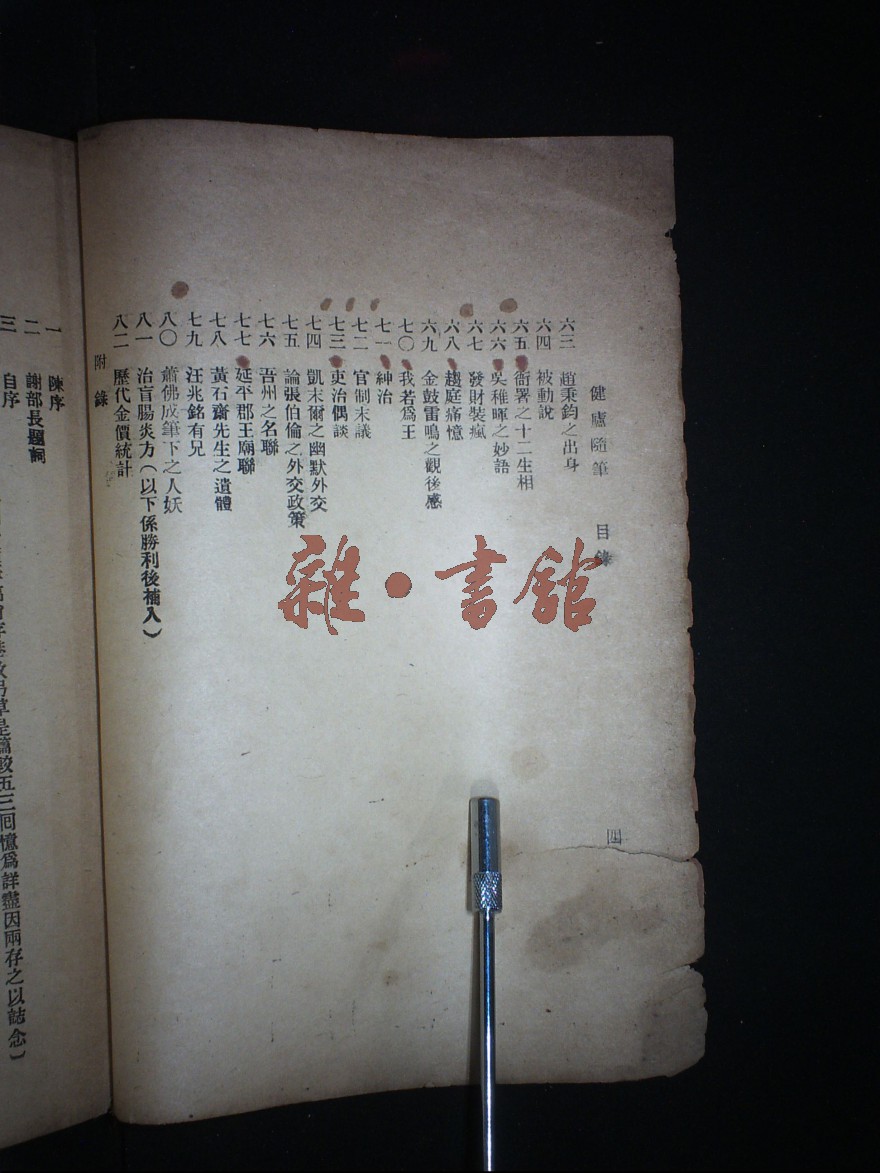 健廬隨筆 目錄
四
六三 趙秉鈞之出身
六四 被動說
六五 衙署之十二生相
六六 吳稚暉之妙語
六七 發財裝瘋
六八 趨庭痛憶
六九 金鼓雷鳴之觀後感
七〇 我若爲王
七一 紳治
七二 官制末議
七三 吏治偶談
七四 凱末爾之幽默外交
七五 論張伯倫之外交政策
七六 吾州之名聯
七七 延平郡王廟聯
七八 黃石齋先生之遺體
七九 汪兆銘有兄
八〇 蕭佛成筆下之人妖
八一 治盲腸炎方（以下係勝利後補入）
八二 歷代金價統計
附錄
一 陳序
二 謝部長題詞
三 自序
草是蕭毅五三回憶爲詳盡因兩存之以誌念）
雜·書館